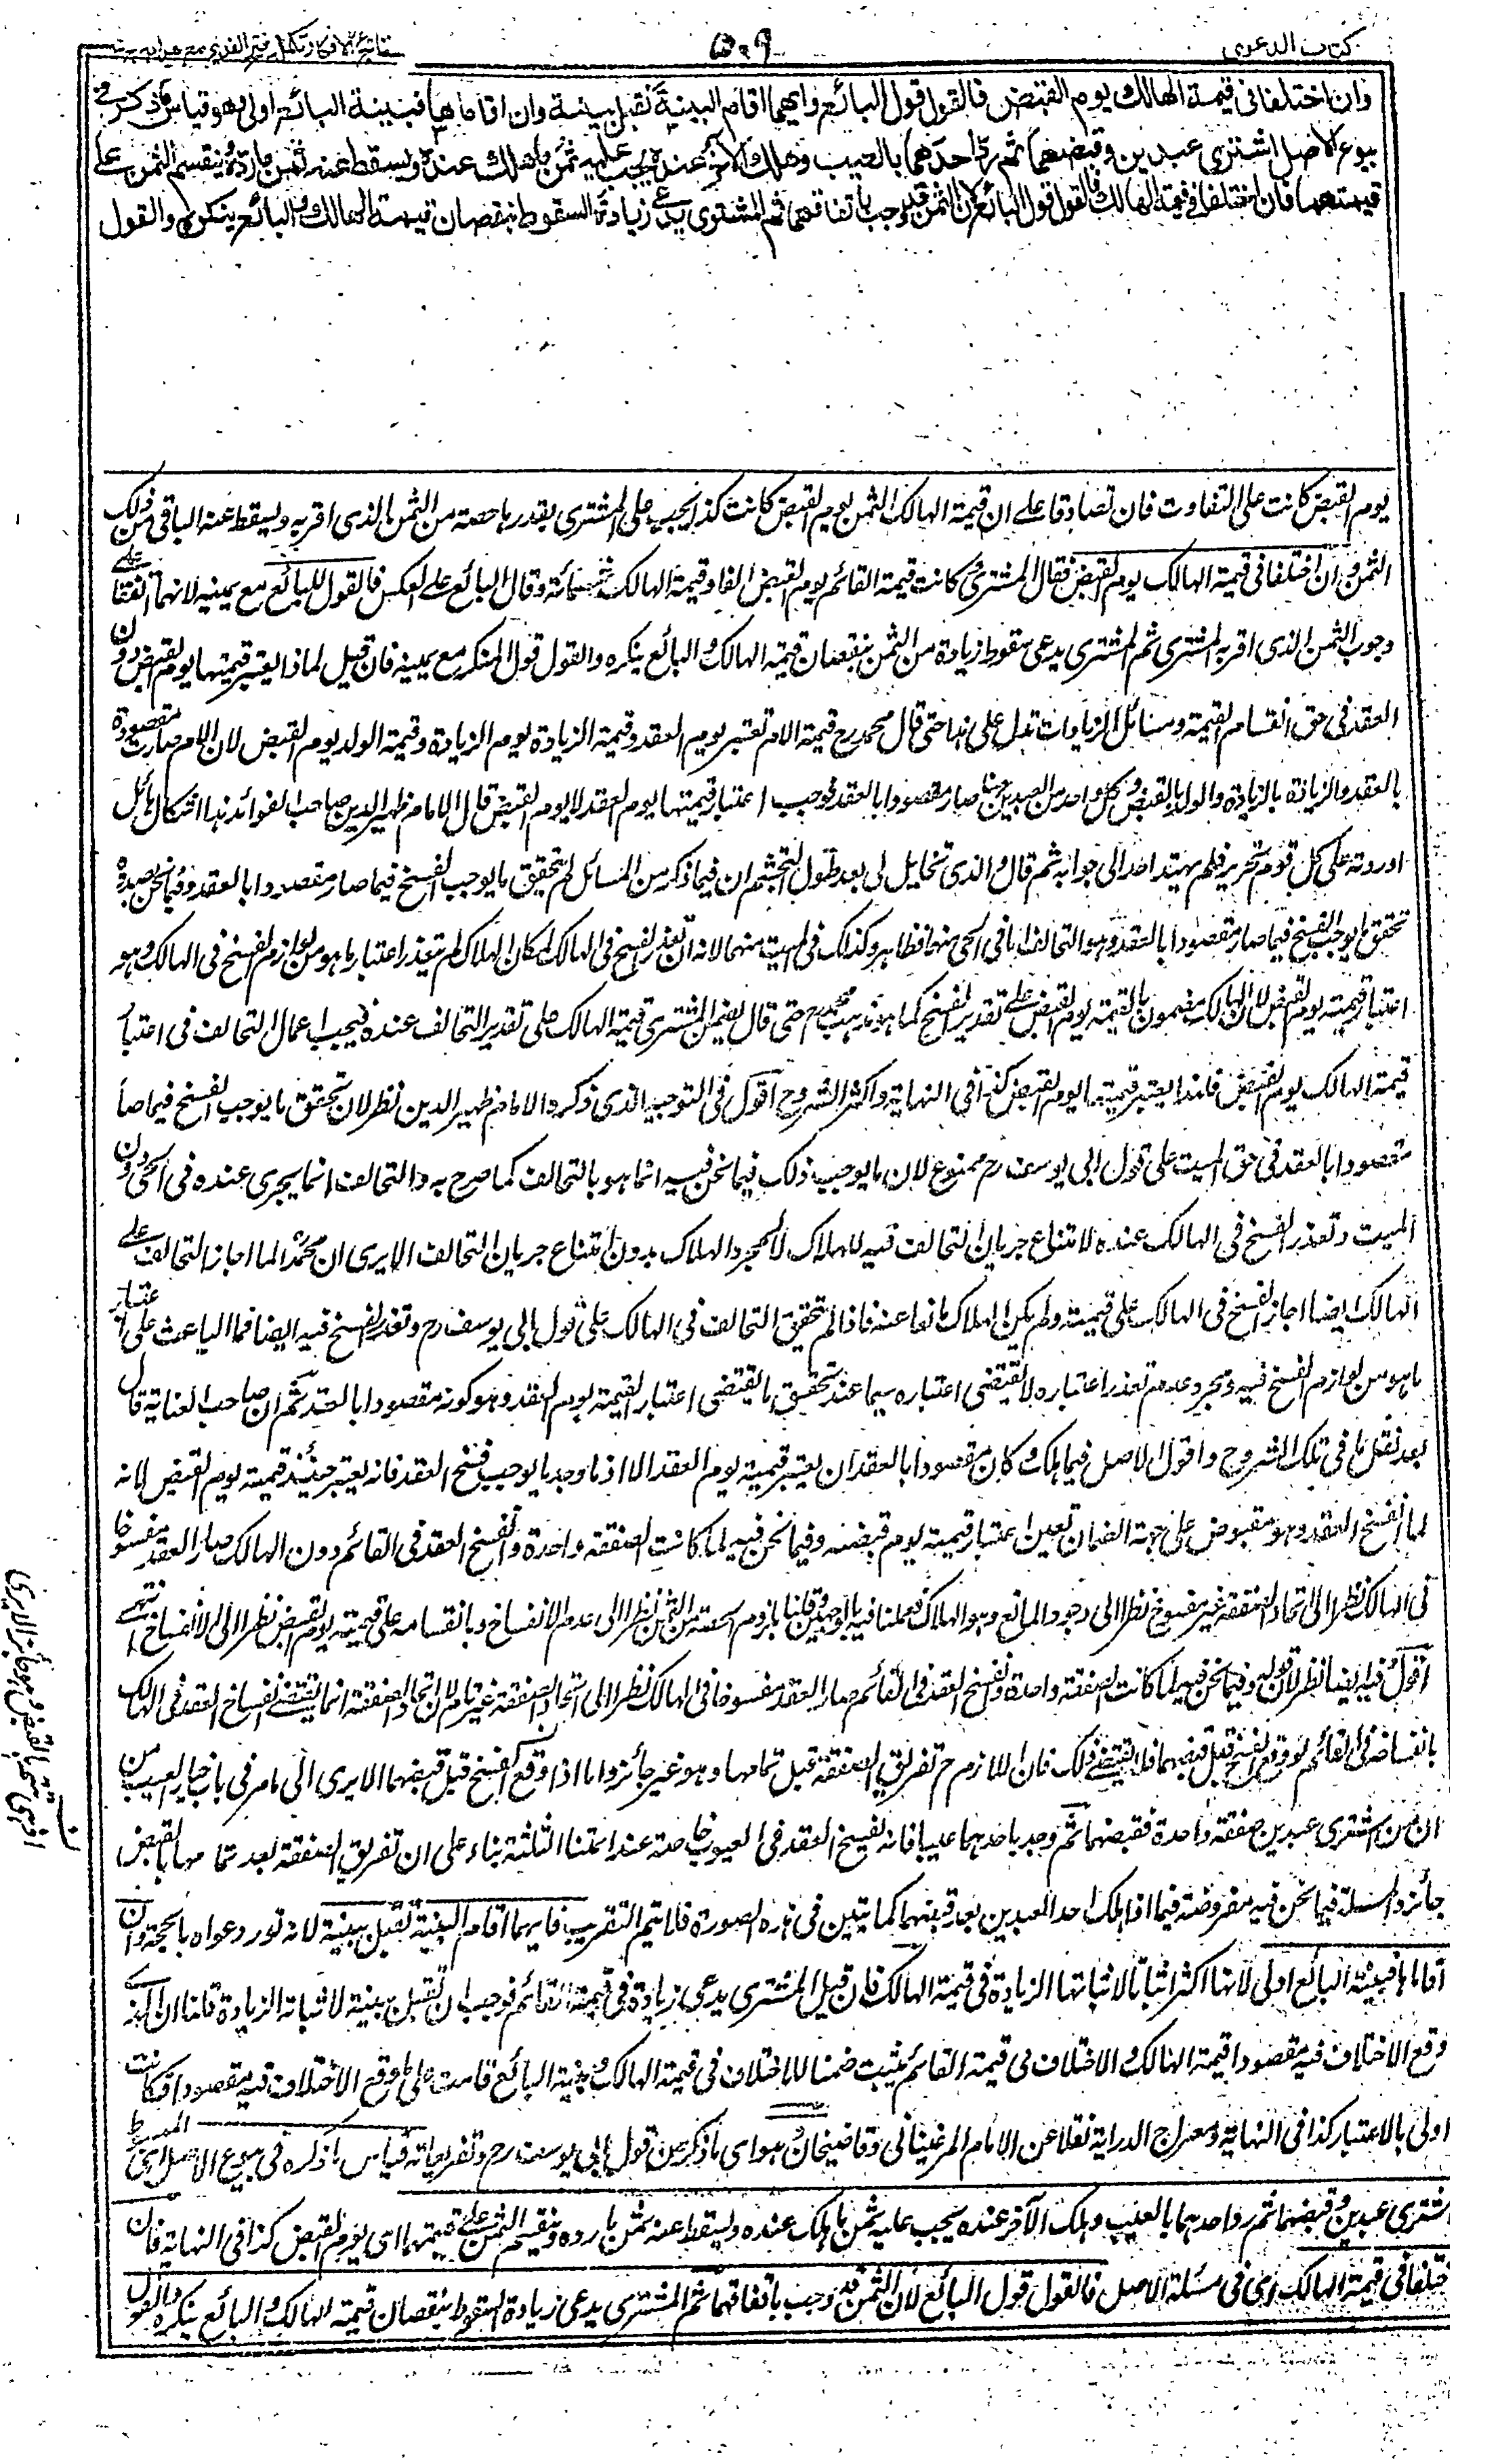 كتاب الدعوى
٥٠٩
نتائج الافكار تكملة فتح القدير مع هدايه
وان اختلفا فى قيمة الهالك يوم القبض فالقول قول البائع وايهما اقام البينة تقبل بينة وان اقاماها فبينة البائع اولى وهو قياس ما ذكر فى
بيوع الاصل اشترى عبدين وقبضهما ثم رد احدهما بالعيب وهلك الاخر عنده يجب عليه ثمن ما هلك عنده ويسقط عنه ثمن ما رده وينقسم الثمن على
قيمتهما فان اختلفا فى قيمة الهالك فالقول قول البائع لان الثمن قد وجب باتفاقهما ثم المشترى يدعى زيادة السقوط بنقصان قيمة الهالك والبائع ينكره والقول
يوم القبض كانت على التفاوت فان تصادقا على ان قيمة الهالك الثمن يوم القبض كانت كذا يجب على المشترى بقدر ما حصته من الثمن الذى اقر به ويسقط عنه الباقى من ذلك
الثمن وان اختلفا فى قيمة الهالك يوم القبض فقال المشترى كانت قيمة القائم يوم القبض الفا وقيمة الهالك خمسمائة وقال البائع على العكس فالقول للبائع مع يمينه لانهما اتفقا على
وجوب الثمن الذى اقر به المشترى ثم المشترى يدعى سقوط زيادة من الثمن بنقصان قيمة الهالك والبائع ينكره والقول قول المنكر مع يمينه فان قيل لماذا يعتبر قيمتها يوم القبض دون
العقد فى حق انقسام القيمة ومسائل الزيادات تدل على هذا حتى قال محمد رح قيمة الام تعتبر يوم العقد وقيمة الزيادة يوم الزيادة وقيمة الولد يوم القبض لان الام صارت مقصودة
بالعقد والزيادة بالزيادة والولد بالقبض وكل واحد من العبدين هنا صار مقصودا بالعقد فوجب اعتبار قيمتها يوم العقد لا يوم القبض قال الامام ظهير الدين صاحب الفوائد هذا اشكال هائل
اوردته على كل قرم نحرير فلم يهتد احد الى جوابه ثم قال والذى تخايل لى بعد طول التجشم ان فيما ذكر من المسائل لم يتحقق ما يوجب الفسخ فيما صار مقصودا بالعقد وفيما نحن بصدده
تحقق ما يوجب الفسخ فيما صار مقصودا بالعقد وهو التحالف اما فى الحى منهما فظاهر وكذلك فى الميت منهما لانه ان تعذر الفسخ فى الهالك لمكان الهلاك لم يتعذر اعتبار ما هو من لوازم الفسخ فى الهالك وهو
اعتبار قيمته يوم القبض لان الهالك مضمون بالقيمة يوم القبض على تقدير الفسخ كما هو مذهب محمد رح حتى قال يضمن المشترى قيمة الهالك على تقدير التحالف عنده فيجب اعمال التحالف فى اعتبار
قيمة الهالك يوم القبض فلهذا يعتبر قيمتهما يوم القبض كذا فى النهاية واكثر الشروح اقول فى التوجيه الذى ذكره الامام ظهير الدين نظر لان تحقق ما يوجب الفسخ فيما صار
مقصودا بالعقد فى حق الميت على قول ابى يوسف رح ممنوع لان ما يوجب ذلك فيما نحن فيه انما هو بالتحالف كما صرح به والتحالف انما يجرى عنده فى الحى دون
الميت وتعذر الفسخ فى الهالك عنده لامتناع جريان التحالف فيه للهلاك لا لمجرد الهلاك بدون امتناع جريان التحالف الا يرى ان محمدا لما اجاز التحالف على
الهالك ايضا اجاز الفسخ فى الهالك على قيمته ولم يكن الهلاك مانعا عنه فاذا لم يتحقق التحالف فى الهالك على قول ابى يوسف رح وتعذر الفسخ فيه ايضا فما الباعث على اعتبار
ما هو من لوازم الفسخ فيه ومجرد عدم تعذر اعتباره لا يقتضى اعتباره سيما عند تحقق ما يقتضى اعتبار القيمة يوم العقد وهو كونه مقصودا بالعقد ثم ان صاحب العناية قال
بعد نقل ما فى تلك الشروح واقول الاصل فيما هلك وكان مقصودا بالعقد ان يعتبر قيمته يوم العقد الا اذا وجد ما يوجب فسخ العقد فانه يعتبر حينئذ قيمته يوم القبض لانه
لما انفسخ العقد وهو مقبوض على جهة الضمان تعين اعتبار قيمته يوم قبضه وفيما نحن فيه لما كانت الصفقة واحدة وانفسخ العقد فى القائم دون الهالك صار العقد مفسوخا
فى الهالك نظرا الى اتحاد الصفقة غير مفسوخ نظرا الى وجود المانع وهو الهلاك فعملنا فيه بالوجهين وقلنا بلزوم الحصة من الثمن نظرا الى عدم الانفساخ وبانقسامه على قيمته يوم القبض نظرا الى الانفساخ انتهى
اقول فيه ايضا نظر لان قوله وفيما نحن فيه لما كانت الصفقة واحدة وانفسخ العقد فى القائم صار العقد مفسوخا فى الهالك نظرا الى اتحاد الصفقة غير تام لان اتحاد الصفقة انما يقتضى انفساخ العقد فى الهالك
بانفساخه فى القائم لو وقع الفسخ قبل قبضهما فلا يقتضى ذلك فان اللازم ح تفريق الصفقة قبل تمامها وهو غير جائز واما اذا وقع الفسخ قبل قبضهما الا يرى الى ما مر فى باب خيار العيب من
ان من اشترى عبدين صفقة واحدة فقبضهما ثم وجد باحدهما عيبا فانه يفسخ العقد فى المعيوب خاصة عند ائمتنا الثلثة بناء على ان تفريق الصفقة بعد تمامها بالقبض
جائز والمسئلة فيما نحن فيه مفروضة فيما اذا هلك احد العبدين بعد قبضهما كما يتبين فى هذه الصورة فلا يتم التقريب فايهما اقام البينة تقبل بينة لانه نور دعواه بالحجة وان
اقاماها فبينة البائع اولى لانها اكثر اثباتا لاثباتها الزيادة فى قيمة الهالك فان قيل المشترى يدعى زيادة فى قيمة القائم فوجب ان تقبل بينة لاثباته الزيادة قلنا ان الذى
وقع الاختلاف فيه مقصودا قيمة الهالك والاختلاف فى قيمة القائم يثبت ضمنا للاختلاف فى قيمة الهالك وبينة البائع قامت على ما وقع الاختلاف فيه مقصودا فكانت
اولى بالاعتبار كذا فى النهاية ومعراج الدراية نقلا عن الامام المرغينانى وقاضيخان وهو اى ما ذكر من قول ابى يوسف رح وتفريعاته قياس ما ذكره فى بيوع الاصل اى المبسوط
اشترى عبدين وقبضهما ثم رد احدهما بالعيب وهلك الآخر عنده يجب عليه ثمن ما هلك عنده ويسقط عنه ثمن ما رده وينقسم الثمن على قيمتهما اى يوم القبض كذا فى النهاية فان
اختلفا فى قيمة الهالك اى فى مسئلة الاصل فالقول قول البائع لان الثمن قد وجب باتفاقهما ثم المشترى يدعى زيادة السقوط بنقصان قيمة الهالك والبائع ينكره والقول